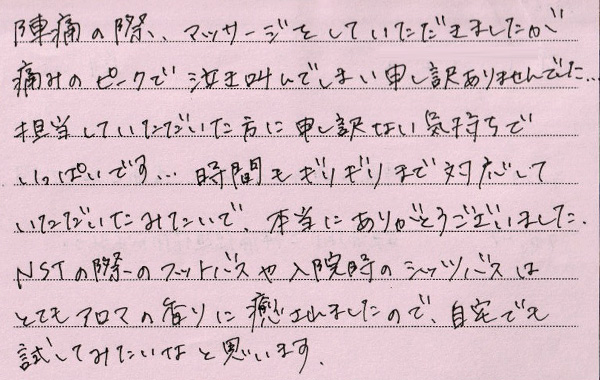 陣痛の際、マッサージをしていただきましたが
痛みのピークで泣き叫んでしまい申し訳ありませんでした…
担当していただいた方に申し訳ない気持ちで
いっぱいです… 時間もギリギリまで対応して
いただいたみたいで、本当にありがとうございました。
NSTの際のフットバスや入院時のシッツバスは
とてもアロマの香りに癒されましたので、自宅でも
試してみたいなと思います。